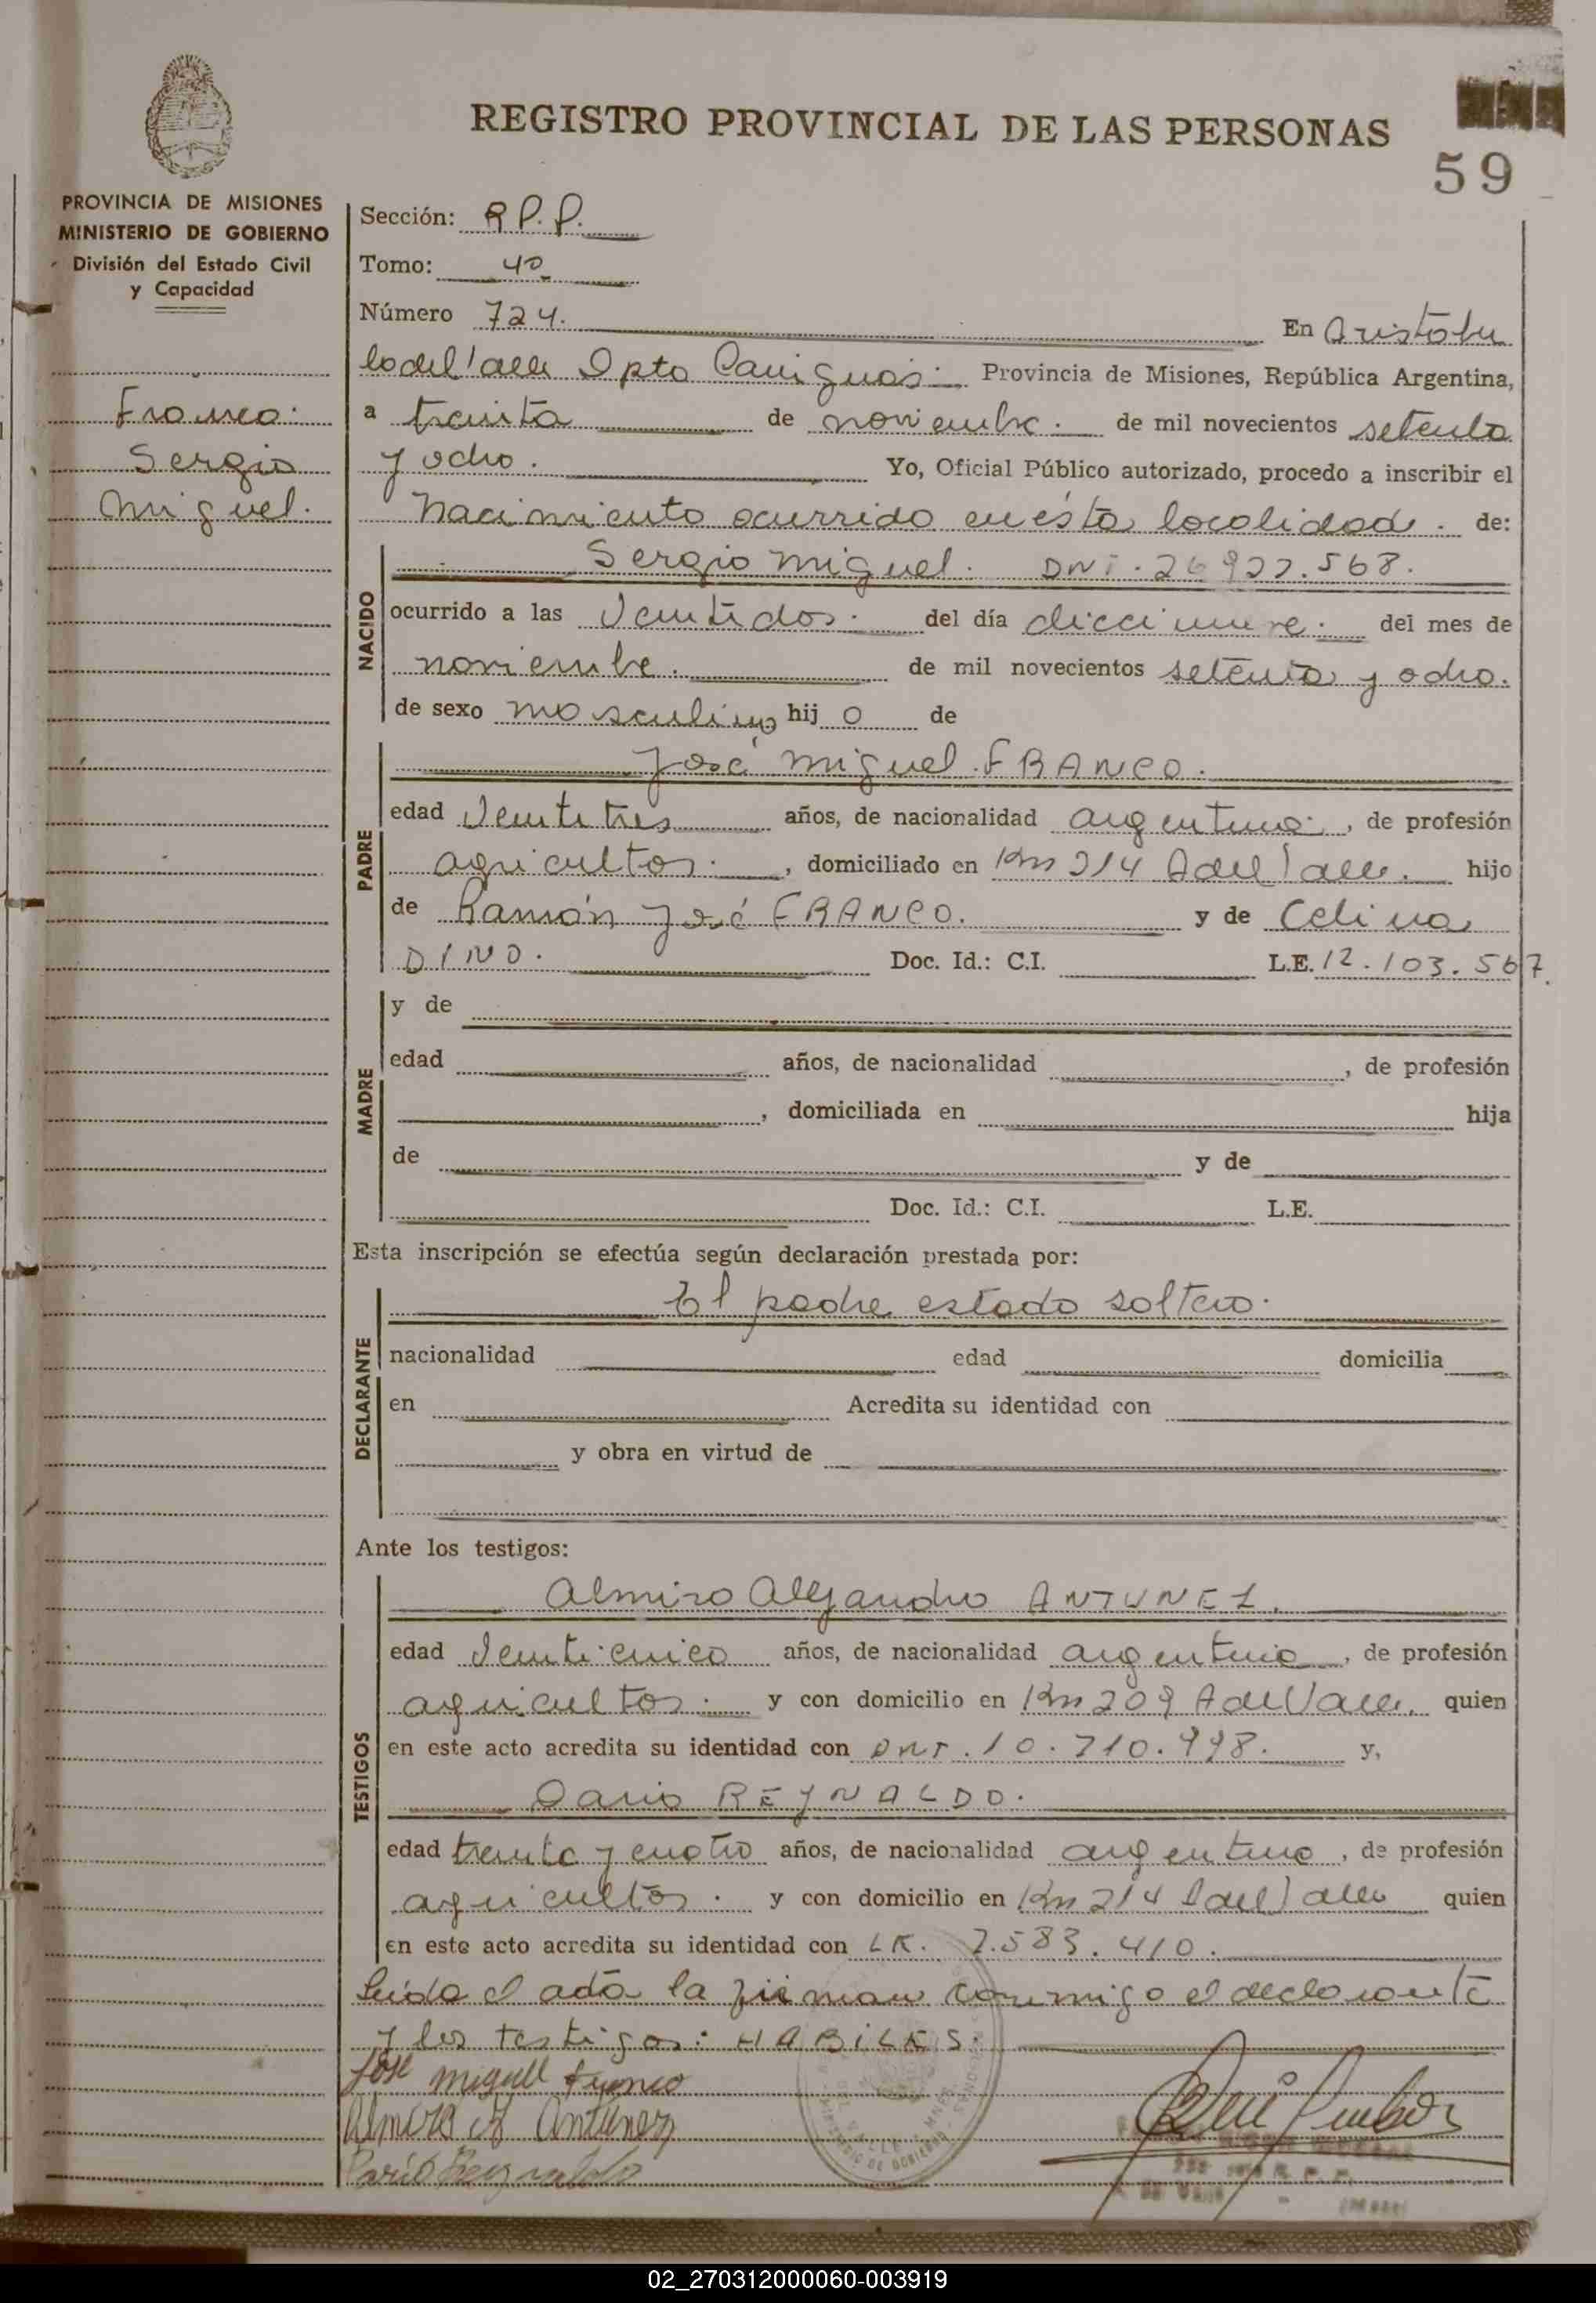 REGISTRO PROVINCIAL DE LAS PERSONAS
59
PROVINCIA DE MISIONES
MINISTERIO DE GOBIERNO
División del Estado Civil
y Capacidad
Franco.
Sergio
Miguel.
Sección: R P. P.
Tomo: 4º
Número 724. En Aristóbu
lo del Valle Dpto Cainguás. Provincia de Misiones, República Argentina,
a treinta de noviembre. de mil novecientos setenta
y ocho. Yo, Oficial Público autorizado, procedo a inscribir el
nacimiento ocurrido en ésta localidad. de:
NACIDO
Sergio Miguel. DNI. 26.927.568.
ocurrido a las Ventidos. del día diecinueve. del mes de
noviembre. de mil novecientos setenta y ocho.
de sexo masculino hij o de
PADRE
José Miguel FRANCO.
edad Ventitres años, de nacionalidad argentina., de profesión
agricultor., domiciliado en Km 214 A del Valle. hijo
de Ramón José FRANCO. y de Celina
DINO. Doc. Id.: C.I. L.E. 12.103.567.
MADRE
y de
edad años, de nacionalidad , de profesión
, domiciliada en hija
de y de
Doc. Id.: C.I. L.E.
Esta inscripción se efectúa según declaración prestada por:
DECLARANTE
El padre estado soltero.
nacionalidad edad domicilia
en Acredita su identidad con
y obra en virtud de
Ante los testigos:
TESTIGOS
Almiro Alejandro ANTUNEZ.
edad Venticinco años, de nacionalidad argentino, de profesión
agricultor. y con domicilio en Km 209 A del Valle. quien
en este acto acredita su identidad con DNI. 10.710.998. y,
Dario REYNALDO.
edad treinta y cuatro años, de nacionalidad argentino, de profesión
agricultor. y con domicilio en Km 214 A del Valle quien
en este acto acredita su identidad con LE. 7.583.410.
Leída el acta la firman conmigo el declarante
y los testigos: HABILES.
José Miguel Franco
Almiro A Antunez
Darío Reynaldo
02_270312000060-003919